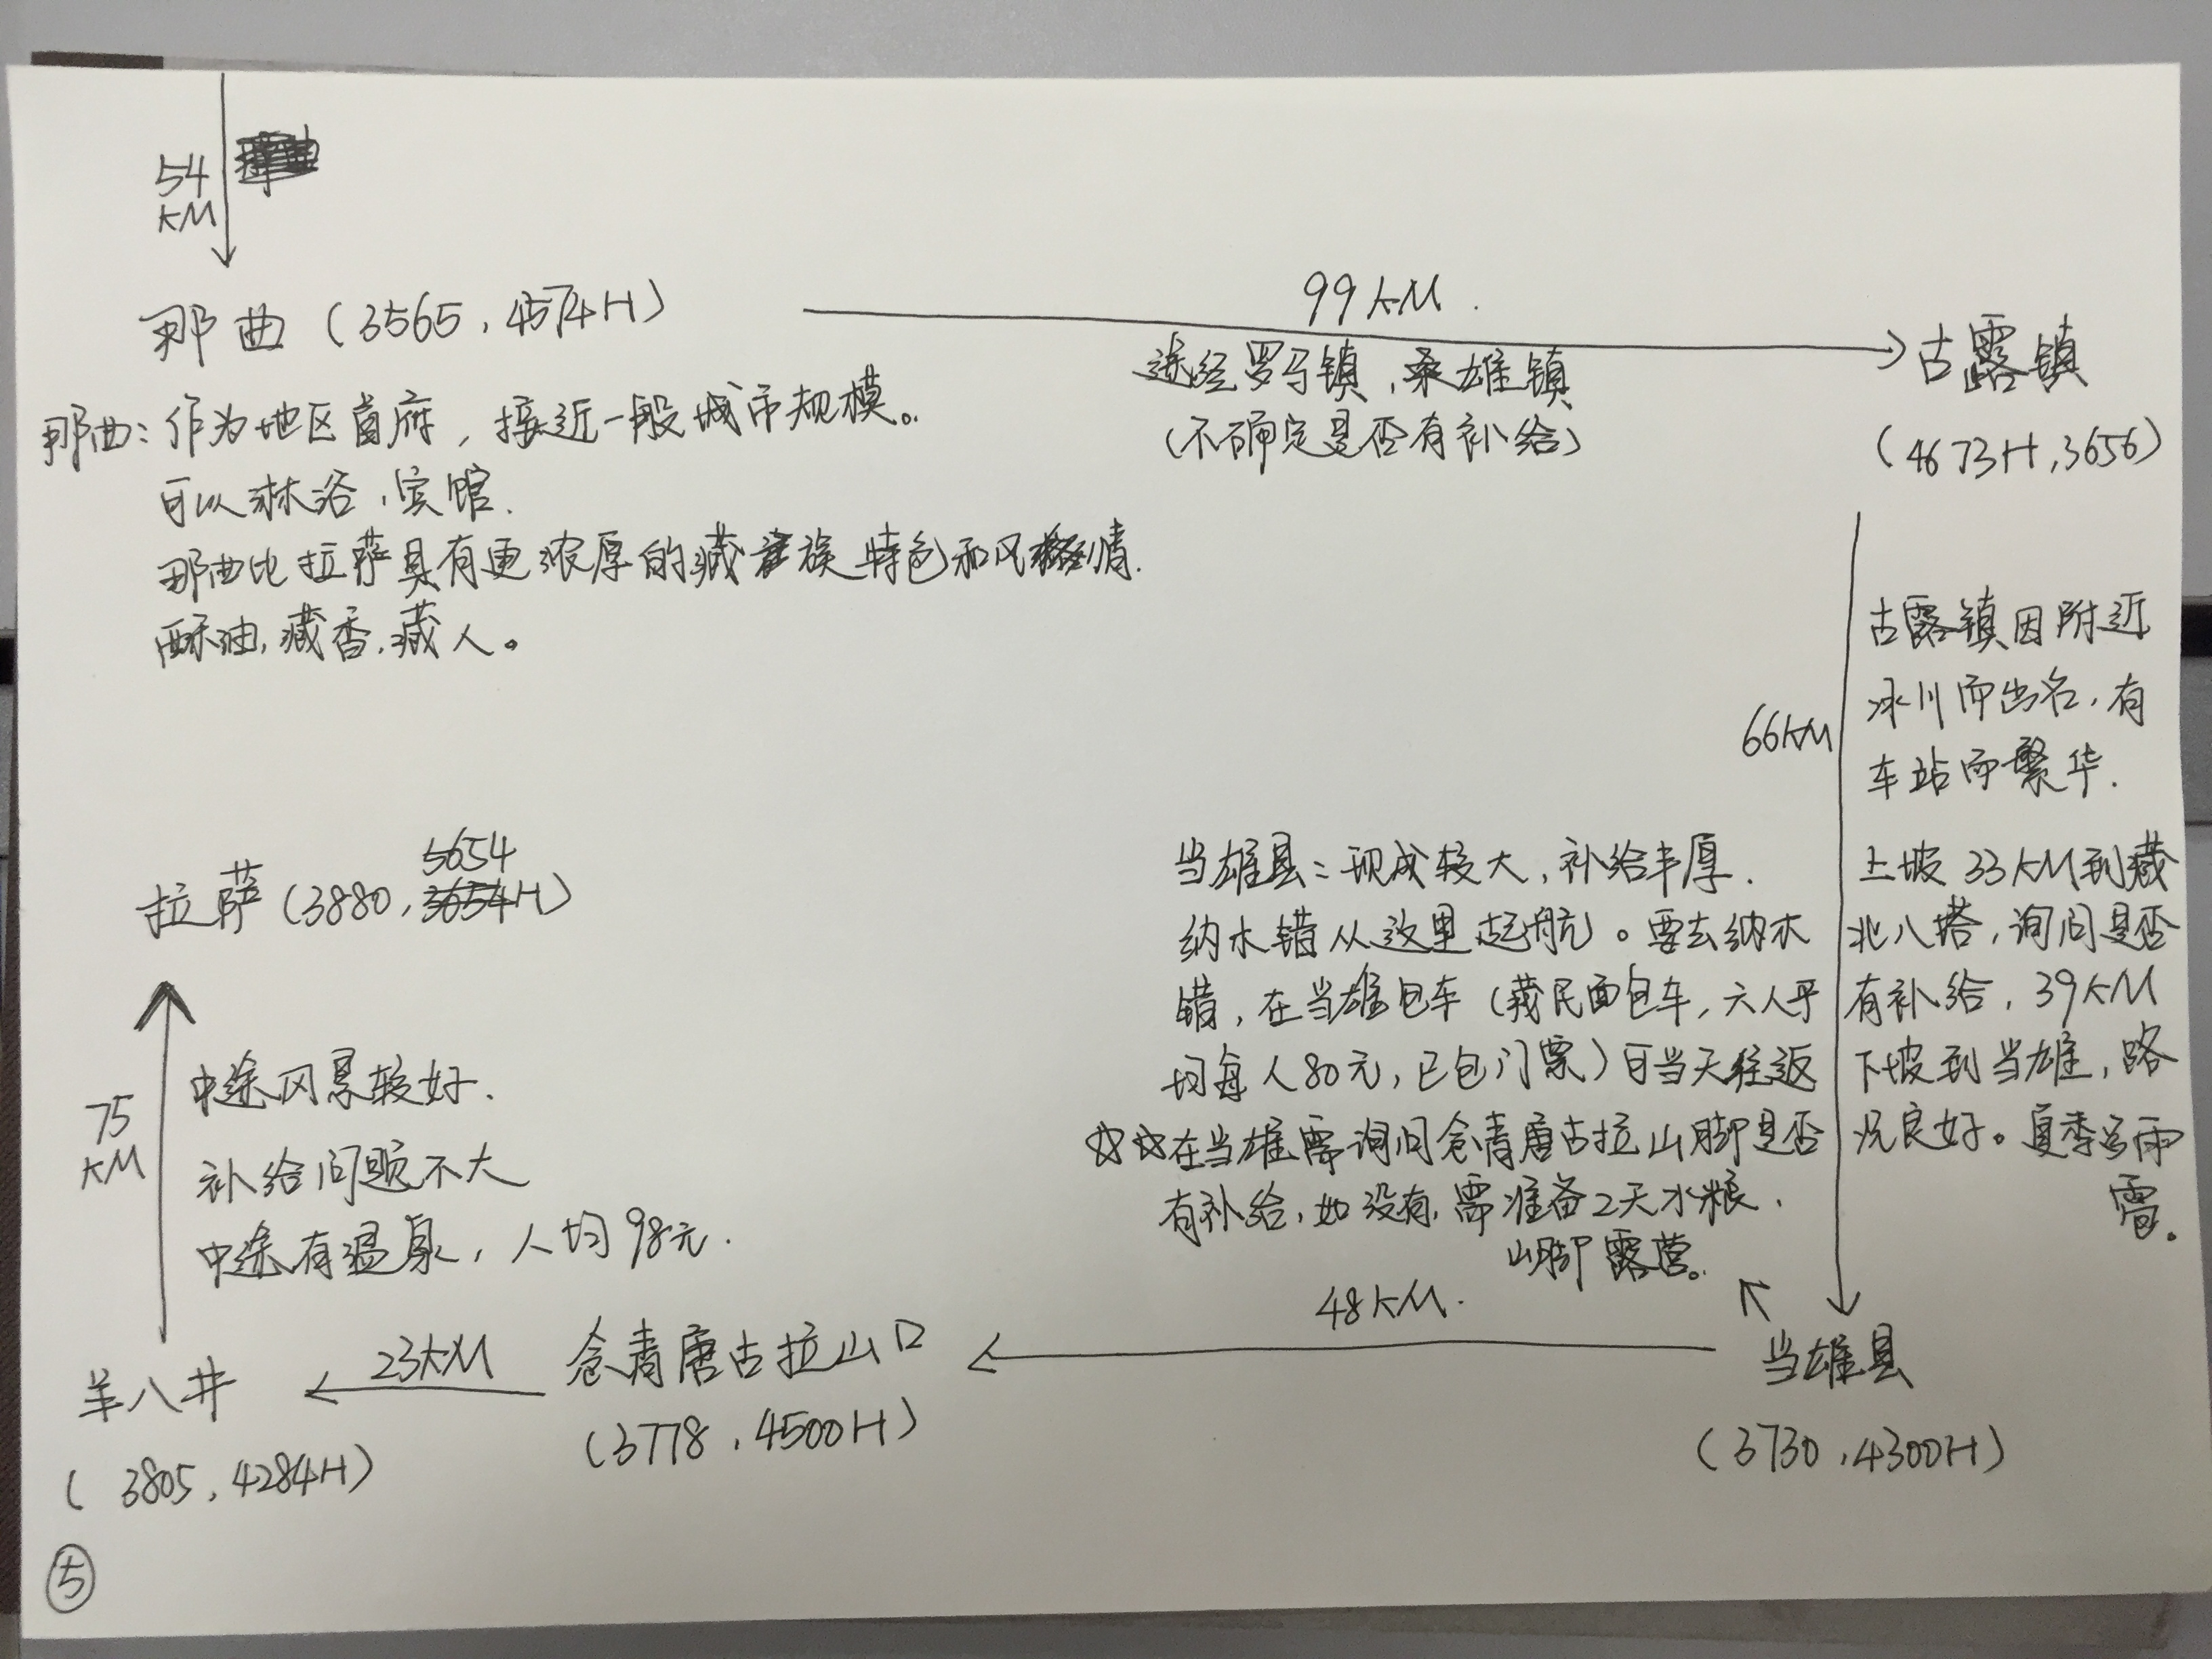 54
KM
那曲（3565，4574H）
99KM.
途经罗马镇，桑雄镇
（不确定是否有补给）
古露镇
（4673H，3656）
那曲：作为地区首府，接近一般城市规模。
可以淋浴，宾馆.
那曲比拉萨具有更浓厚的藏族特色和风情.
酥油，藏香，藏人。
66KM
古露镇因附近
冰川而出名，有
车站而繁华.
上坡33KM到藏
北八塔，询问是否
有补给，39KM
下坡到当雄，路
况良好。夏季多雨
雪。
当雄县：现成较大，补给丰厚.
纳木错从这里起航。要去纳木
错，在当雄包车（藏民面包车，六人平
均每人80元，已包门票）可当天往返
☆☆在当雄需询问仓青唐古拉山脚是否
有补给，如没有，需准备2天水粮.
山脚露营。
当雄县
（3730，4300H）
48KM.
仓青唐古拉山口
（3778，4500H）
23KM
羊八井
（3805，4284H）
75
KM
中途风景较好.
补给问题不大
中途有温泉，人均98元.
3654
拉萨（3880，3654H）
⑤